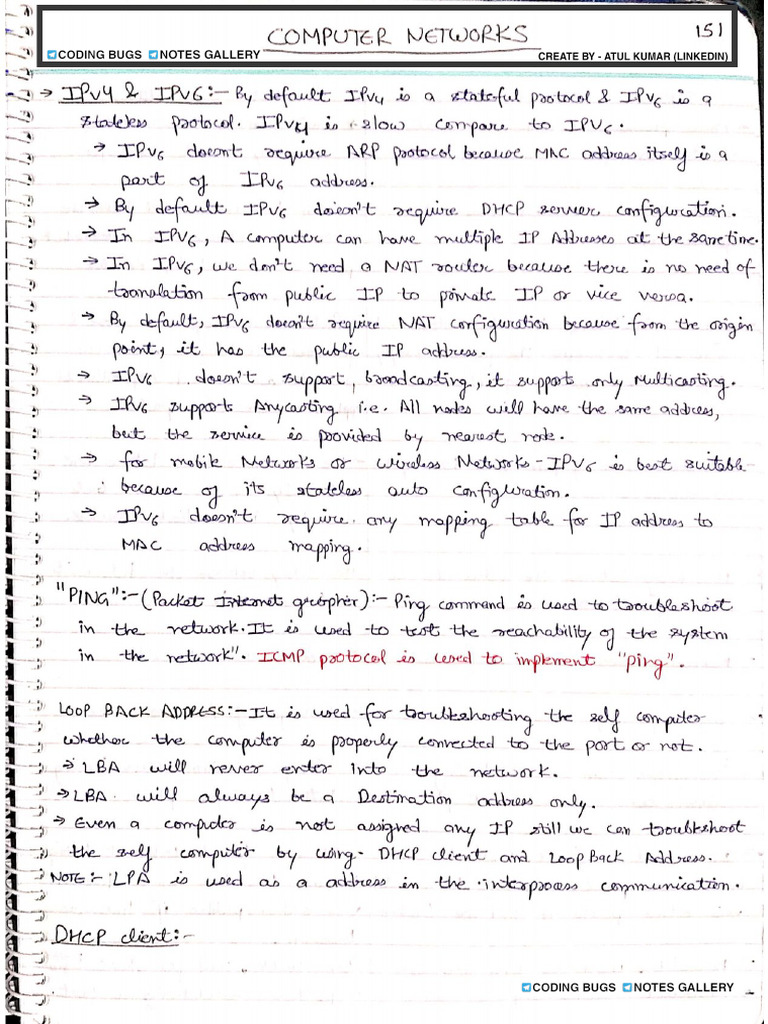 COMPUTER NETWORKS
151
CODING BUGS NOTES GALLERY
CREATE BY - ATUL KUMAR (LINKEDIN)
→ IPV4 & IPV6:- By default IPV4 is a stateful protocol & IPV6 is a
stateless protocol. IPV4 is slow compare to IPV6.
→ IPV6 doesnt require ARP protocol because MAC address itself is a
part of IPV6 address.
→ By default IPV6 doesn't require DHCP server configuration.
→ In IPV6, A computer can have multiple IP Addresses at the same time.
→ In IPV6, we don't need a NAT router because there is no need of
translation from public IP to private IP or vice versa.
→ By default, IPV6 doesn't require NAT configuration because from the origin
point, it has the public IP address.
→ IPV6 doesn't support, broadcasting, it support only Multicasting.
→ IPV6 support Anycasting i.e. All nodes will have the same address,
but the service is provided by nearest node.
→ for mobile Networks or wireless Networks - IPV6 is best suitable
because of its stateless auto configuration.
→ IPV6 doesn't require any mapping table for IP address to
MAC address mapping.
"PING":- (Packet Internet gropher):- Ping command is used to troubleshoot
in the network. It is used to test the reachability of the system
in the network". ICMP protocol is used to implement "ping".
LOOP BACK ADDRESS:- It is used for troubleshooting the self computer
whether the computer is properly connected to the port or not.
→ LBA will never enter into the network.
→ LBA will always be a Destination address only.
→ Even a computer is not assigned any IP still we can troubleshoot
the self computer by using DHCP client and Loop Back Address.
NOTE:- LPA is used as a address in the interprocess communication.
DHCP client:-
CODING BUGS NOTES GALLERY